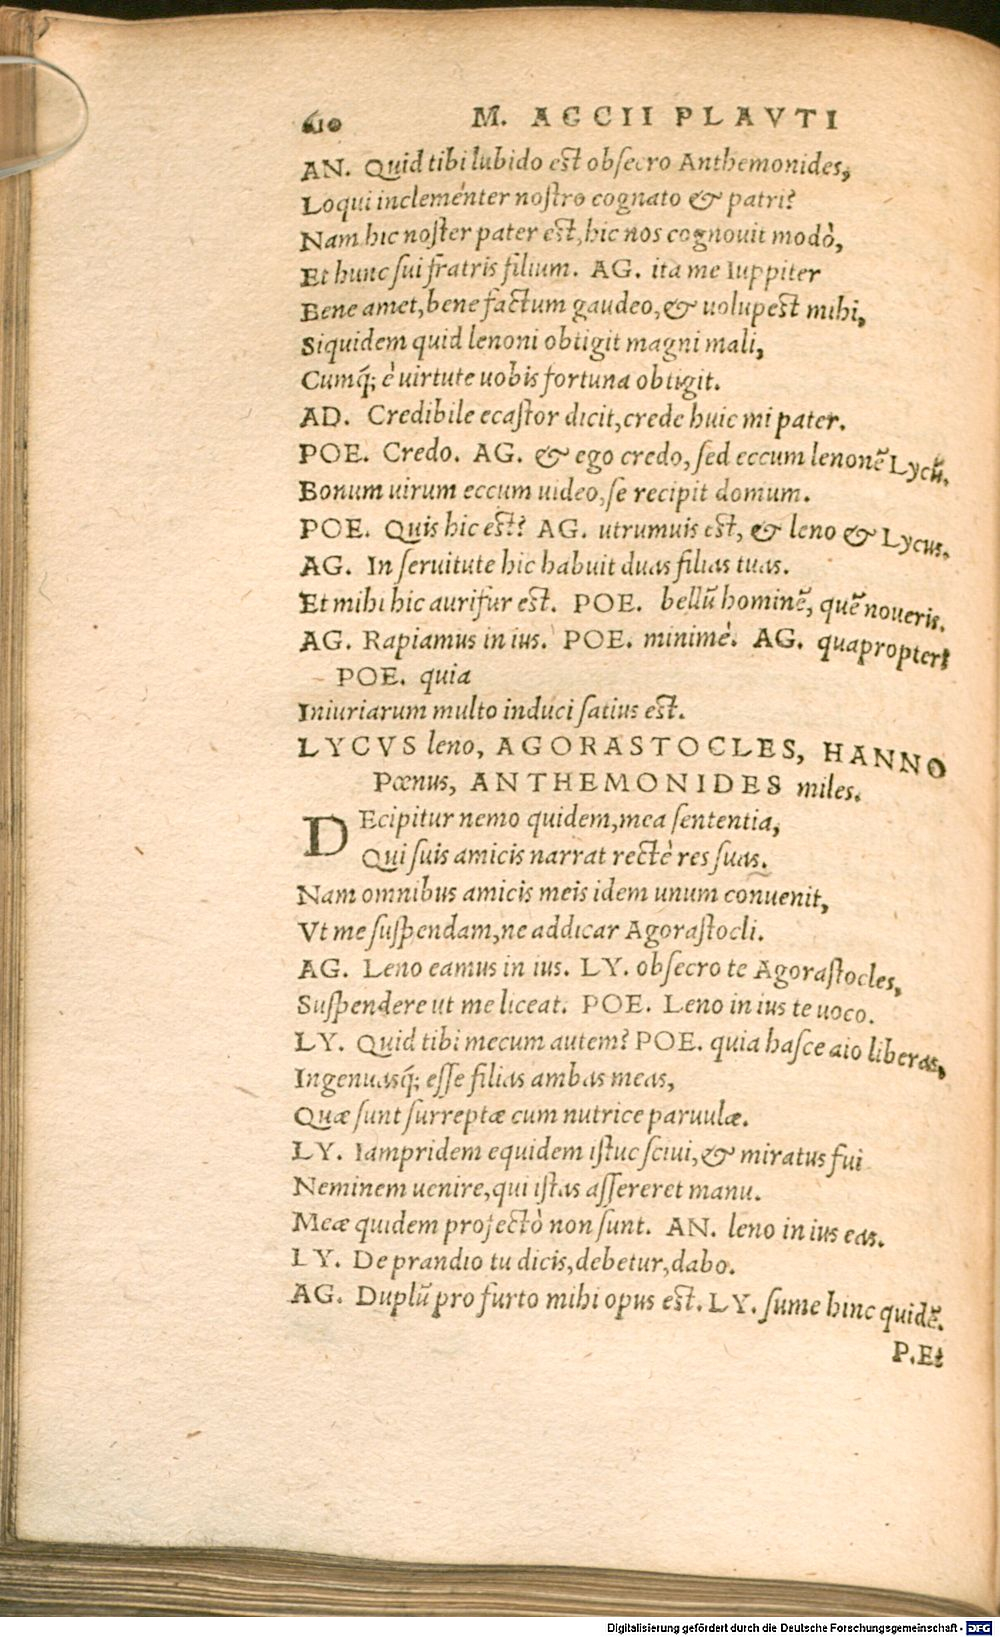 610 M. ACCII PLAVTI
AN. Quid tibi lubido est obsecro Anthemonides,
Loqui inclementer nostro cognato & patri?
Nam hic noster pater est, hic nos cognouit modò,
Et hunc sui fratris filium. AG. ita me Iuppiter
Bene amet, bene factum gaudeo, & uolupest mihi,
Siquidem quid lenoni obtigit magni mali,
Cumq́; è uirtute uobis fortuna obtigit.
AD. Credibile ecastor dicit, crede huic mi pater.
POE. Credo. AG. & ego credo, sed eccum lenonẽ Lycũ.
Bonum uirum eccum uideo, se recipit domum.
POE. Quis hic est? AG. utrumuis est, & leno & Lycus.
AG. In seruitute hic habuit duas filias tuas.
Et mihi hic aurifur est. POE. bellũ hominẽ, quẽ noueris.
AG. Rapiamus in ius. POE. minimè. AG. quapropter?
POE. quia
Iniuriarum multo induci satius est.
LYCVS leno, AGORASTOCLES, HANNO
Pœnus, ANTHEMONIDES miles.
DEcipitur nemo quidem, mea sententia,
Qui suis amicis narrat rectè res suas.
Nam omnibus amicis meis idem unum conuenit,
Vt me suspendam, ne addicar Agorastocli.
AG. Leno eamus in ius. LY. obsecro te Agorastocles,
Suspendere ut me liceat. POE. Leno in ius te uoco.
LY. Quid tibi mecum autem? POE. quia hasce aio liberas,
Ingenuasq́; esse filias ambas meas,
Quæ sunt surreptæ cum nutrice paruulæ.
LY. Iampridem equidem istuc sciui, & miratus fui
Neminem uenire, qui istas assereret manu.
Meæ quidem profectò non sunt. AN. leno in ius eas.
LY. De prandio tu dicis, debetur, dabo.
AG. Duplũ pro furto mihi opus est. LY. sume hinc quidẽ.
P. Et
Digitalisierung gefördert durch die Deutsche Forschungsgemeinschaft - DFG